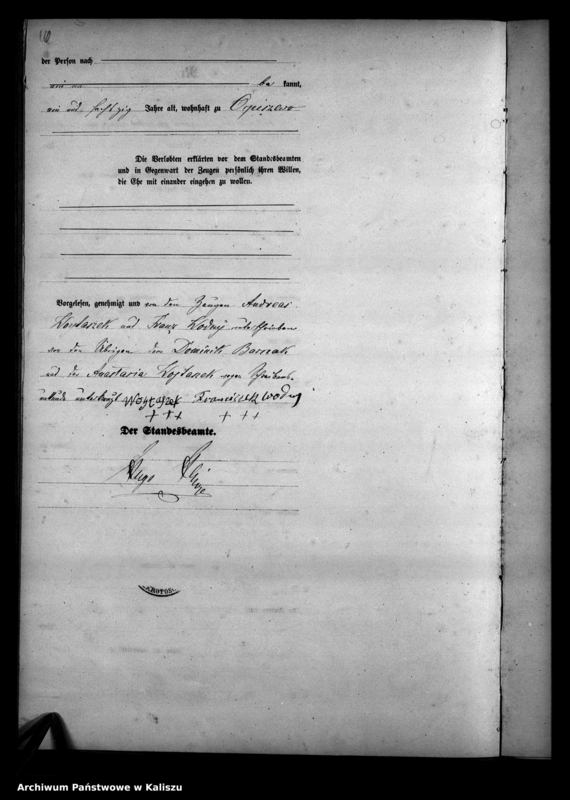 der Person nach
be kannt,
ein und sechszig Jahre alt, wohnhaft zu Opiszewo
Die Verlobten erklärten vor dem Standesbeamten
und in Gegenwart der Zeugen persönlich ihren Willen,
die Ehe mit einander eingehen zu wollen.
Vorgelesen, genehmigt und von den Zeugen Andreas
und Franz Wodny unterschrieben
von den Übrigen dem Dominik
und der Anastasia wegen Schreibens-
unkunde unterkreuzt Woytaszek Franciszek wodny
+++ +++
Der Standesbeamte.
Hugo
KROTOS
Archiwum Państwowe w Kaliszu